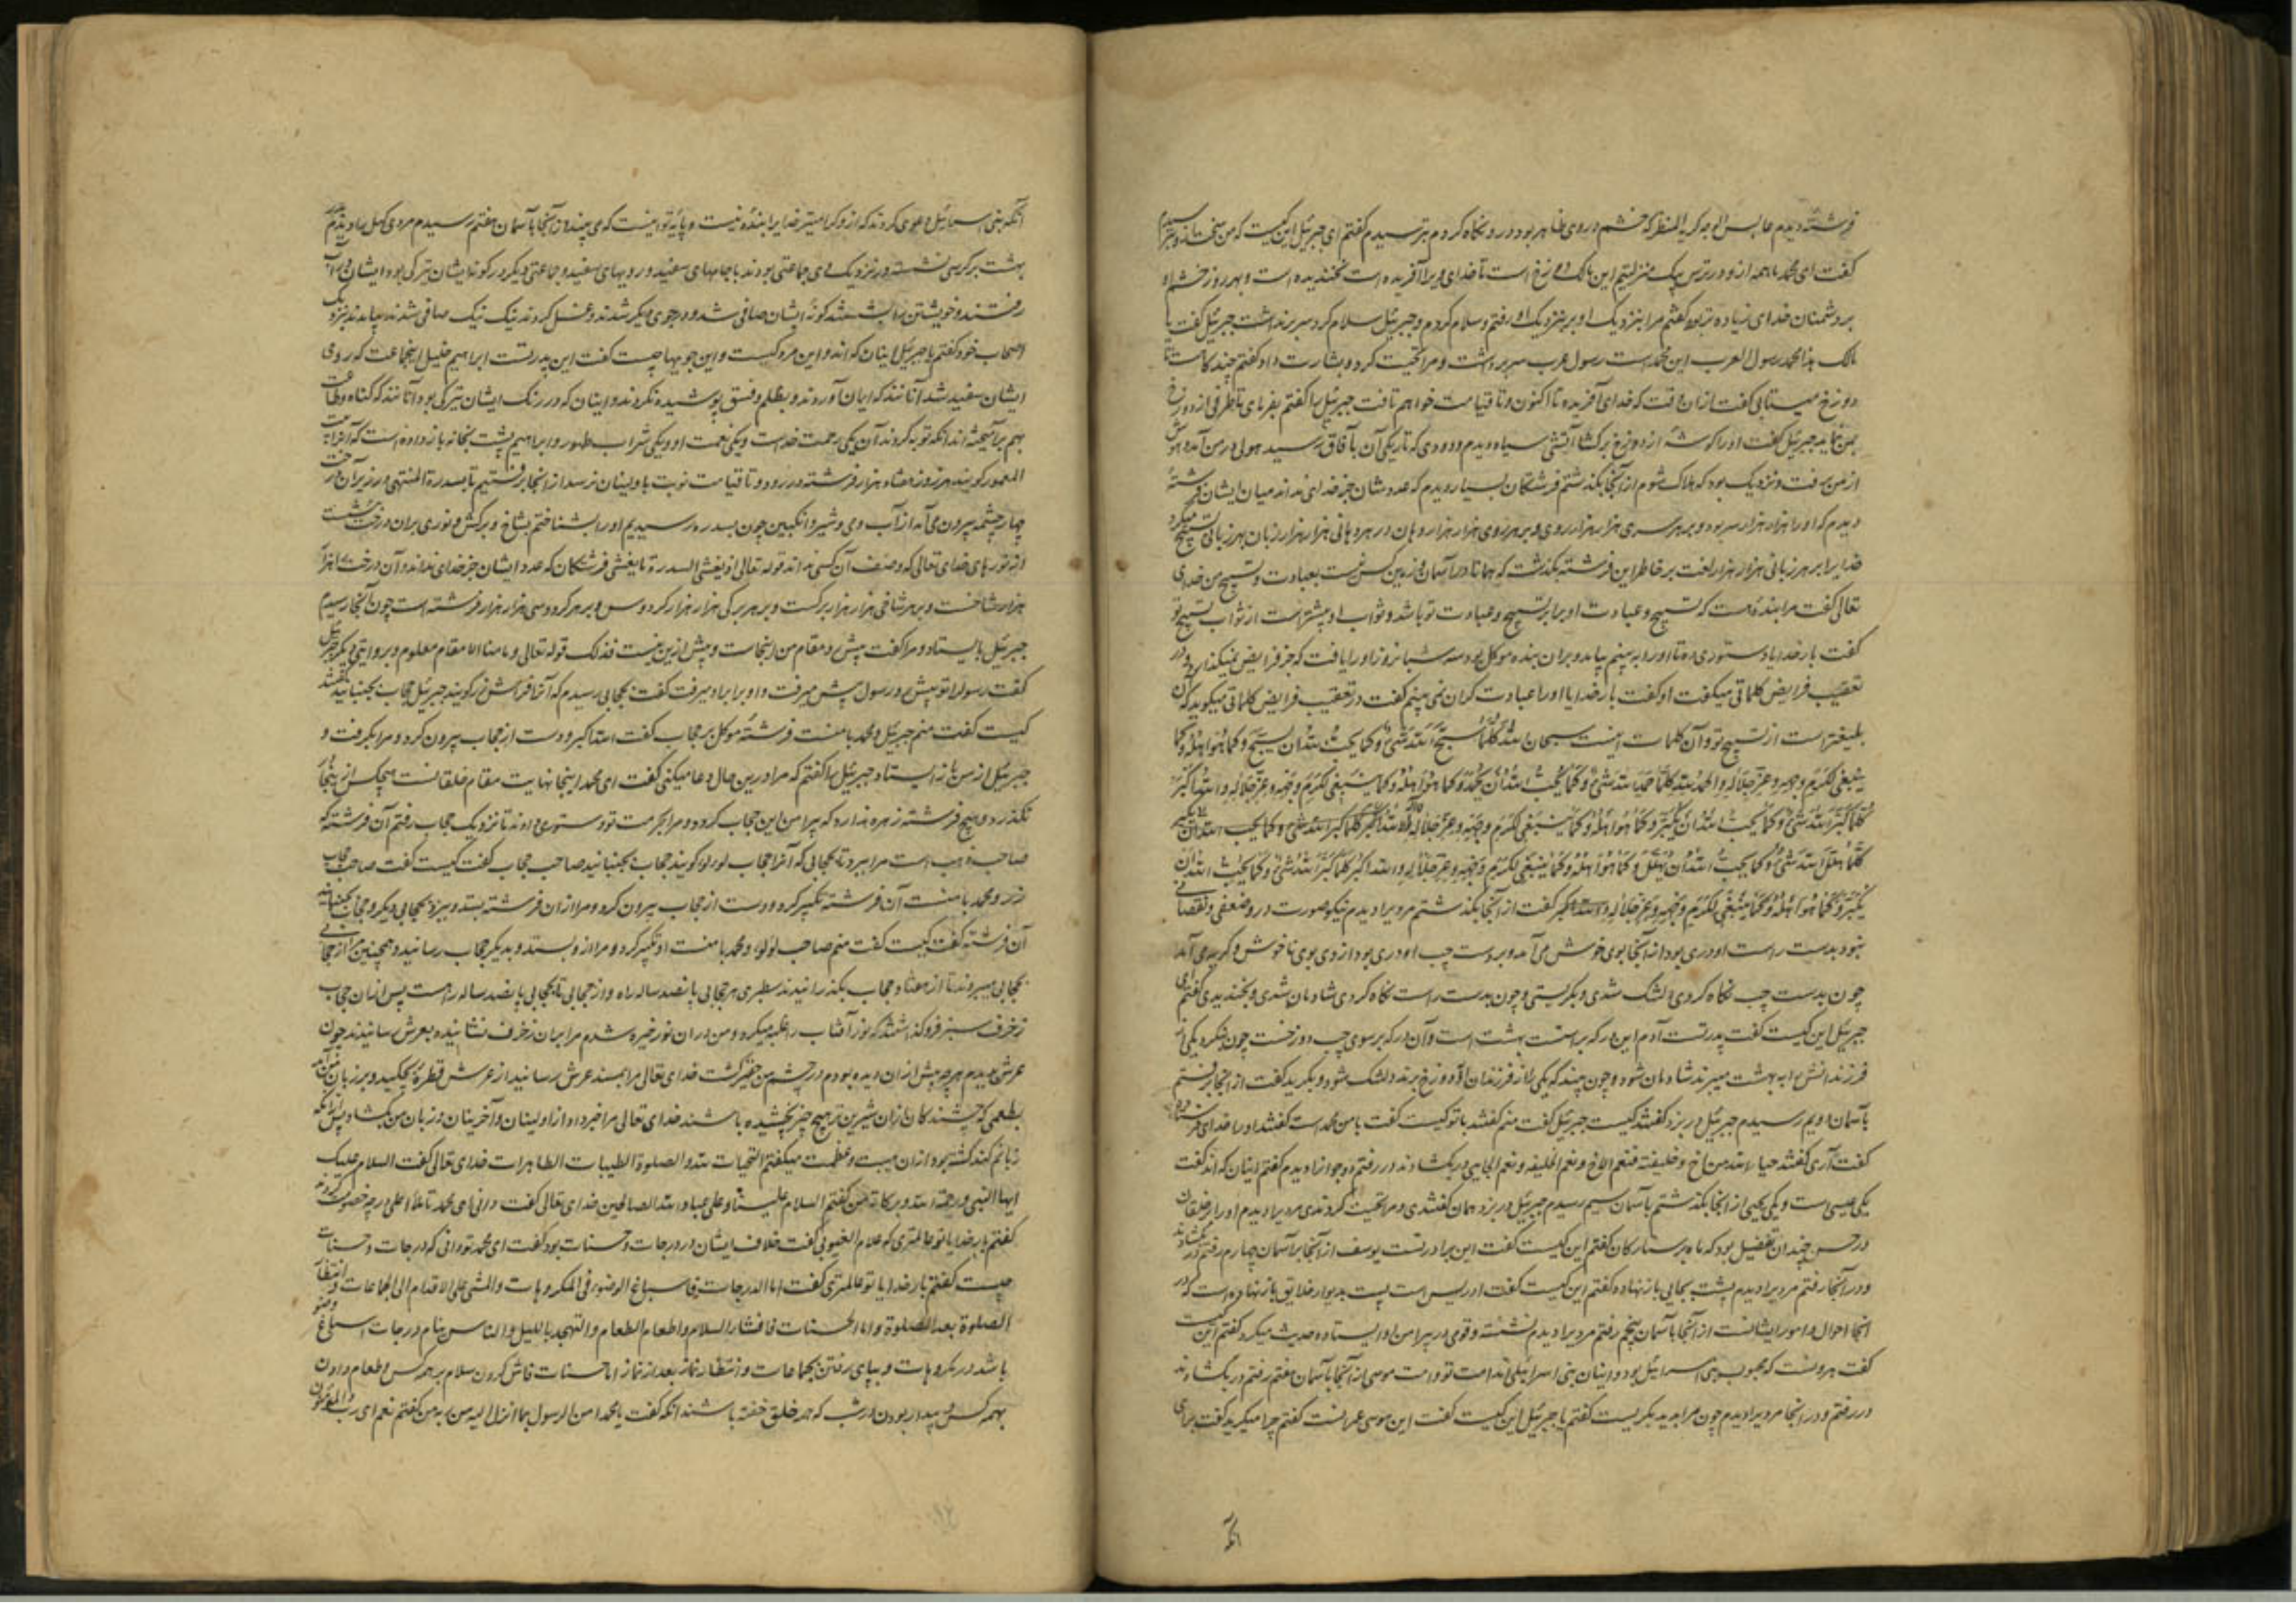 فرشتهٔ دیدم عابس الوجه کریه المنظر که خشم در روی ظاهر بود در و نگاه کردم بترسیدم گفتم ای جبرئیل این کیست که من سخت از و بترسیدم
گفت ای محمد ما همه ازو در ترس یک منزلتیم این مالک دوزخ است تا خدای ویرا آفریده است نخندیده است و بهر روز خشم او
بر دشمنان خدای زیاده تر بود گفتم مرا بنزدیک او بر بنزدیک او رفتم و سلام کردم و جبرئیل سلام کرد سر برنداشت جبرئیل گفت یا
مالک هذا محمد رسول العرب این محمد است رسول عرب سر برداشت و مرا تحیت کرد و بشارت داد گفتم چند کاست تا
دوزخ میتابی گفت از ان وقت که خدای آفریده تا اکنون و تا قیامت خواهم تافت جبرئیل را گفتم بفرمای تا طرفی از دوزخ
بمن نماید جبرئیل گفت او را گوشهٔ از دوزخ برکشا آتشی سیاه دیدم و دودی که تاریکی آن بآفاق برسید هولی در من آمد و هوش
از من برفت و نزدیک بود که هلاک شوم از آنجا بگذشتم فرشتگان بسیار دیدم که عددشان جز خدای نداند میان ایشان فرشتهٔ
دیدم که او را هزار هزار سر بود و بر هر سری هزار هزار روی و بر هر روی هزار هزار دهان در هر دهانی هزار هزار زبان بهر زبانی تسبیح میکرد
خدایرا بر هر زبانی هزار هزار لغت بر خاطر این فرشته بگذشت که همانا در آسمان و زمین کس نیست بعبادت و تسبیح من خدای
تعالی گفت مرا بندهٔ هست که تسبیح و عبادت او برابر تسبیح و عبادت تو باشد و ثواب او بیشتر است از ثواب تسبیح تو
گفت بار خدایا دستوری ده تا او را به بینم بیامد و بران بنده موکل بود سه شبانروز او را یافت که جز فرایض نمیگذارد و در
تعقیب فرایض کلماتی میگفت او گفت بار خدایا او را عبادت گران نمی بینم گفت در تعقیب فرایض کلماتی میگوید که آن
بلیغتر است از تسبیح تو و آن کلمات اینست سبحان الله کلما سبح الله شیٔ و کما یحب الله ان یسبح و کما هو اهله و کما
ینبغی لکرم وجهه و عز جلاله و الحمد لله کلما حمد الله شیٔ و کما یحب الله ان یحمد و کما هو اهله و کما ینبغی لکرم وجهه و عز جلاله و الله اکبر
کلما کبر الله شیٔ و کما یحب الله ان یکبر و کما هو اهله و کما ینبغی لکرم وجهه و عز جلاله و لا اله الا الله
کلما هلل الله شیٔ و کما یحب الله ان یهلل و کما هو اهله و کما ینبغی لکرم وجهه و عز جلاله و الله اکبر کلما کبر الله شیٔ و کما یحب الله ان
یکبر و کما هو اهله و کما ینبغی لکرم وجهه و عز جلاله و الله اکبر گفت از آنجا بگذشتم مردیرا دیدم نیکو صورت در و ضعفی و نقصانی
نبود بدست راست او دری بود از آنجا بوی خوش می آمد و بر دست چپ او دری بود از وی بوی ناخوش و کریه می آمد
چون بدست چپ نگاه کردی دلتنگ شدی و بگریستی و چون بدست راست نگاه کردی شادمان شدی و بخندیدی گفتم ای
جبرئیل این کیست گفت پدر تست آدم این در که بر راستست بهشت است و آن در که بر سوی چپ دوزخست چون بنگرد یکی از
فرزندانش را به بهشت میبرند شادمان شود و چون بیند که یکی را از فرزندان او بدوزخ برند دلتنگ شود و بگرید گفت از آنجا برفتم
بآسمان دویم رسیدم جبرئیل در بزد گفتند کیست جبرئیل گفت منم گفتند با تو کیست گفت با من محمد است گفتند او را خدای فرستاده
گفت آری گفتند حیاه الله من اخ و خلیفة فنعم الاخ و نعم الخلیفه و نعم المجیٔ در بگشادند در رفتم دو جوانرا دیدم گفتم اینان که اند گفت
یکی عیسی است و یکی یحیی از انجا بگذشتم بآسمان سیم رسیدم جبرئیل در بزد همان گفتندی و مرا تحیت کردندی مردیرا دیدم او را بر خلقان
در حسن چندان تفضیل بود که ماه بر ستارگان گفتم این کیست گفت این برادر تست یوسف از آنجا بر آسمان چهارم رفتم در بگشادند
و در آنجا رفتم مردیرا دیدم پشت بجایی باز نهاده گفتم این کیست گفت ادریس است پشت بدیوار خلایق باز نهاده است که در
انجا احوال و امور ایشانست از آنجا بآسمان پنجم رفتم مردیرا دیدم نشسته و قومی در پیرامن او ایستاده حدیث میکرد گفتم این کیست
گفت هرونست که محبوب بنی اسرائیل بود و اینان بنی اسرائیل اند امت تو و امت موسی از آنجا بآسمان هفتم رفتم در بگشادند
در رفتم و در انجا مردیرا دیدم چون مرا بدید بگریست گفتم یا جبرئیل این کیست گفت این موسی عمرانست گفتم چرا میگرید گفت برای
آنکه
آنکه بنی اسرائیل دعوی کردند که از و گرامیتر خدایرا بندهٔ نیست و پایهٔ تو اینست که می بیند و از آنجا بآسمان هفتم رسیدم مردی کهل را دیدم بر در
بهشت بر کرسی نشسته و نزدیک وی جماعتی بودند با جامهای سفید و رویهای سفید و جماعتی دیگر در گونه ایشان تیرگی بود ایشان در آب
رفتند و خویشتن را بشستند گونهٔ ایشان صافی شد و در جوی دیگر شدند و غسل کردند نیک نیک صافی شدند بیامدند بنزدیک
اصحاب خود گفتم یا جبرئیل اینان که اند و این مرد کیست و این جویها چیست گفت این پدر تست ابراهیم خلیل اینجماعت که روی
ایشان سفید شد آنانند که ایمان آوردند و بظلم و فسق پوشیده نکردند و اینان که در رنگ ایشان تیرگی بود آنانند که گناه و طاعت
بهم برآمیخته اند آنکه توبه کردند آن یکی رحمت خداست و یکی نعمت او و یکی شراب طهور و ابراهیم پشت بخانه باز داده است که آنرا بیت
المعمور گویند هر روز هفتاد هزار فرشته در رود و تا قیامت نوبت باولینان نرسد از آنجا برفتیم تا بسدرة المنتهی در زیر آن درخت
چهار چشمه بیرون می آید از آب و می و شیر و انگبین چون بسدره رسیدیم او را بشناختم بشاخ و برگش و نوری بران درخت نشست
از نورهای خدای تعالی که وصف آن کسی نداند قوله تعالی اذ یغشی السدرة ما یغشی فرشتگان که عدد ایشان جز خدای نداند و آن درخت را هزار
هزار شاخست و بر هر شاخی هزار هزار برگست و بر هر برگی هزار هزار کردوس و بر هر کردوسی هزار هزار فرشته است چون بآنجا رسیدم
جبرئیل بایستاد و مرا گفت پیش رو مقام من اینجاست و پیش ازین نیست فذلک قوله تعالی و ما منا الا مقام معلوم و بروایتی دیگر جبرئیل
گفت رسول را تو پیش رو رسول پیش میرفت و او برابر او میرفت گفت بحجابی رسیدم که آنرا فراش زر گویند جبرئیل حجاب بجنبانید گفتند
کیست گفت منم جبرئیل و محمد با منست فرشتهٔ موکل بر حجاب گفت الله اکبر و دست از حجاب بیرون کرد و مرا بگرفت و
جبرئیل از من باز ایستاد جبرئیل را گفتم که مرا درین حال رها میکنی گفت ای محمد اینجا نهایت مقام خلقانست هیچکس از ینجا
نگذرد و هیچ فرشته زهره ندارد که پیرامن این حجاب گردد و مرا بحرمت تو دستوری دادند تا نزدیک حجاب رفتم آن فرشته که
صاحب ذهب است مرا ببرد تا بحجابی که آنرا حجاب لؤلؤ گویند حجاب بجنبانید صاحب حجاب گفت کیست گفت صاحب حجاب
زر و محمد با منست آن فرشته تکبیر کرد و دست از حجاب بیرون کرد و مرا از ان فرشته بستد و ببرد بحجابی دیگر و حجاب بجنبانید
آن فرشته گفت کیست گفت منم صاحب لؤلؤ و محمد با منست او تکبیر کرد و مرا از و بستد و بدیگر حجاب رسانید و همچنین مرا از حجابی
بحجابی میبردند تا از هفتاد حجاب بگذرانیدند سطبری هر حجابی پانصد ساله راه و از حجابی تا بحجابی پانصد ساله راهست پس از ان حجاب
زخرف سبز فرو گذاشتند که نور آفتاب را غلبه میکرد و من دران نور خیره شدم مرا بران زخرف نشانیدند و بعرش رسانیدند چون
عرش بدیدم هر چه پیش از ان دیده بودم در چشم من حقیر گشت خدای تعالی مرا بمسند عرش رسانید از عرش قطرهٔ بچکید و بر زبان من آمد
بطعمی که چشندگان از ان شیرین تر هیچ چیز نچشیده باشند خدای تعالی مرا خبر داد از اولینان و آخرینان و زبان من بگشاد پس از آنکه
زبانم کند گشته بود از ان هیبت و عظمت میگفتم التحیات لله و الصلوة الطیبات الطاهرات خدای تعالی گفت السلام علیک
ایها النبی و رحمة الله و برکاته من گفتم السلام علینا و علی عباد الله الصالحین خدای تعالی گفت دانی ای محمد تا ملأ اعلی در چه خصومت کردند
گفتم بار خدایا تو عالمتری که علام الغیوبی گفت خلاف ایشان در درجات و حسنات بود گفت ای محمد تو دانی که درجات و حسنات
چیست گفتم بار خدایا تو عالمتری گفت اما الدرجات فاسباغ الوضوء فی المکروهات و المشی علی الاقدام الی الجماعات و انتظار
الصلوة بعد الصلوة و اما الحسنات فافشاء السلام و اطعام الطعام و التهجد باللیل و الناس نیام درجات اسباغ وضو
باشد در مکروهات و بپای رفتن بجماعات و انتظار نماز بعد از نماز اما حسنات فاش کردن سلام بر همه کس و طعام دادن
بهمه کس و بیدار بودن در شب که همه خلق خفته باشند آنکه گفت یا محمد امن الرسول بما انزل الیه من ربه من گفتم نعم ای رب و المؤمنون